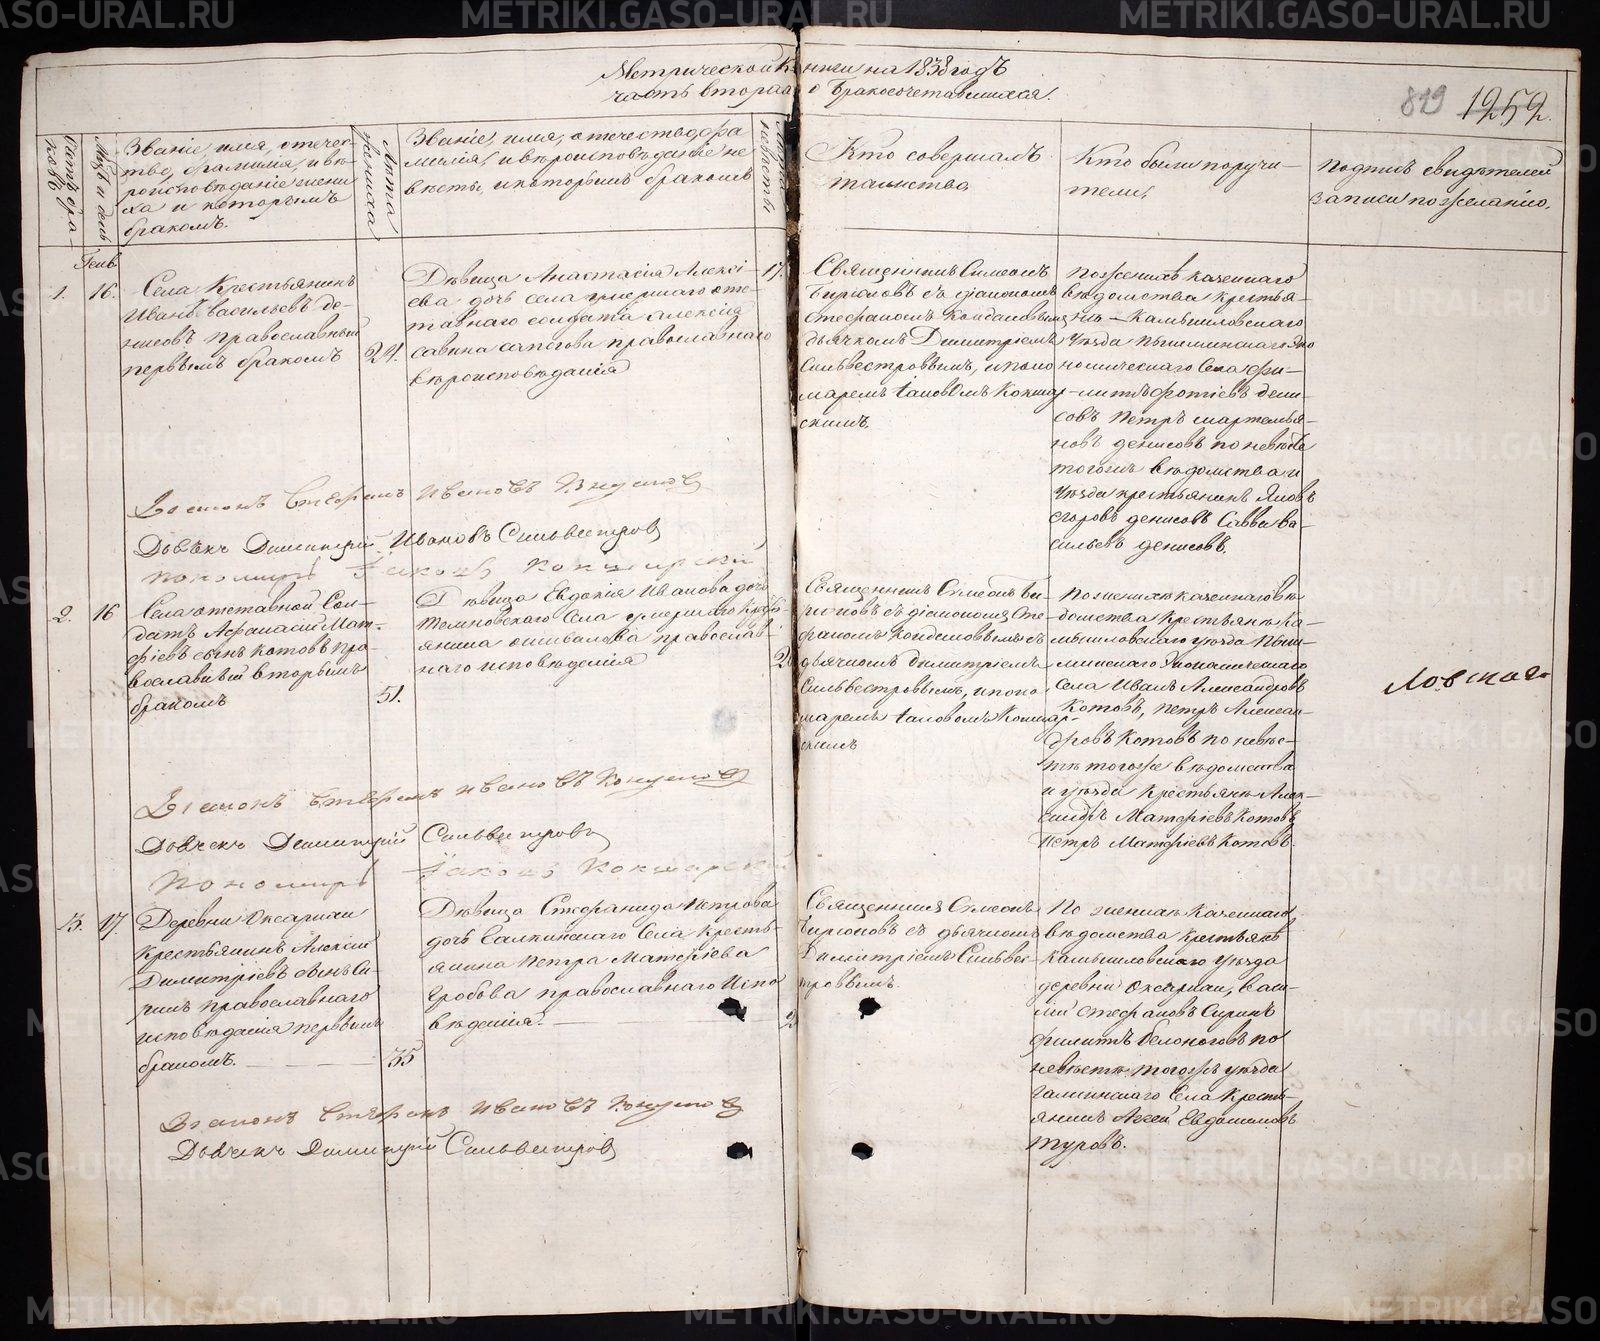 Метрической книги на 1838 годъ
часть вторая о бракосочетавшихся.
819 1252.
Счетъ бра-
ковъ
Мѣц. и день
Званіе, имя, отечес-
тво, фамилія, и вѣ-
роисповѣданіе жени
ха и которымъ
бракомъ.
Лѣта
жениха
Званіе, имя, отечество, фа
милія, и вѣроисповѣданіе не
вѣсты, и которымъ бракомъ
Лѣта
невѣсты
Кто совершалъ
таинство
Кто были поручи-
тели,
Подпись свидѣтелей
записи по желанію.
Генв.
1. 16.
Села Крестьянинъ
Иванъ Васильевъ де-
нисовъ православный
первымъ бракомъ
Дѣвица Анастасія Алексі-
ева дочь села умершаго отс-
тавнаго солдата Алексія
савина сапогова православнаго
вѣроисповѣданія
17.
Священникъ Симеонъ
Бирюковъ съ діакономъ
Стефаномъ
дьячкомъ Димитріемъ
Сильвестровымъ, и поно
маремъ Іаковомъ Кокшар
скимъ.
По женихѣ казеннаго
вѣдомства крестья-
не Камышловскаго
Уѣзда Пышминскаго Эко
номическаго Села
Фотіевъ дени-
совъ Петръ мартемья-
новъ денисовъ по невѣстѣ
тогожъ вѣдомства и
Уѣзда крестьянинъ Яковъ
егоровъ денисовъ Савва ва-
сильевъ денисовъ.
Діаконъ Стефанъ Ивановъ
Дьячекъ Димитрій Ивановъ Сильвестровъ
Пономарь Іаковъ Кокшарскій
2. 16
Села отставной Сол-
датъ Афанасій Мат-
фіевъ сынъ Котовъ пра
вославный вторымъ
бракомъ
51.
Дѣвица Евдокія Иванова дочь
Темновскаго Села умершаго кресть-
янина православ-
наго исповѣданія
Священникъ Симеонъ Би-
рюковъ съ діакономъ Сте
фаномъ съ
дьячкомъ Димитріемъ
Сильвестровымъ, и поно
маремъ Іаковомъ Кокшар-
скимъ
По женихѣ казеннаго вѣ
домства Крестьяне Ка-
мышловскаго уѣзда Пыш-
минскаго Экономическаго
села Иванъ Александровъ
Котовъ, Петръ Алексан-
дровъ Котовъ по невѣс-
тѣ тогоже вѣдомства
и уѣзда Крестьяне Алек-
сандръ Матфіевъ Котовъ
Петръ Матфіевъ Котовъ.
Ловская
Діаконъ Стефанъ Ивановъ
Дьячекъ Димитрій Сильвестровъ
Пономарь Іаковъ Кокшарскій
3. 17.
Деревни Оксариаи
Крестьянинъ Алексій
Димитріевъ сынъ Си-
ринъ православнаго
исповѣданія первымъ
бракомъ.
35
Дѣвица Стефанида Петрова
дочь Галкинскаго Села Кресть-
янина Петра Матфіева
Гробова православнаго Испо
вѣданія.
Священникъ Симеонъ
Бирюковъ съ дьячкомъ
Димитріемъ Сильвес-
тровымъ.
По женихѣ Казеннаго
вѣдомства крестьяне
Камышловскаго Уѣзда
деревни Васи-
лій Стефановъ Сиринъ
филипъ белоноговъ по
невѣстѣ тогожъ уѣзда
Галкинскаго Села Кресть-
янинъ Евдокимовъ
Туровъ.
Діаконъ Стефанъ Ивановъ
Дьячекъ Димитрій Сильвестровъ
METRIKI.GASO-URAL.RU